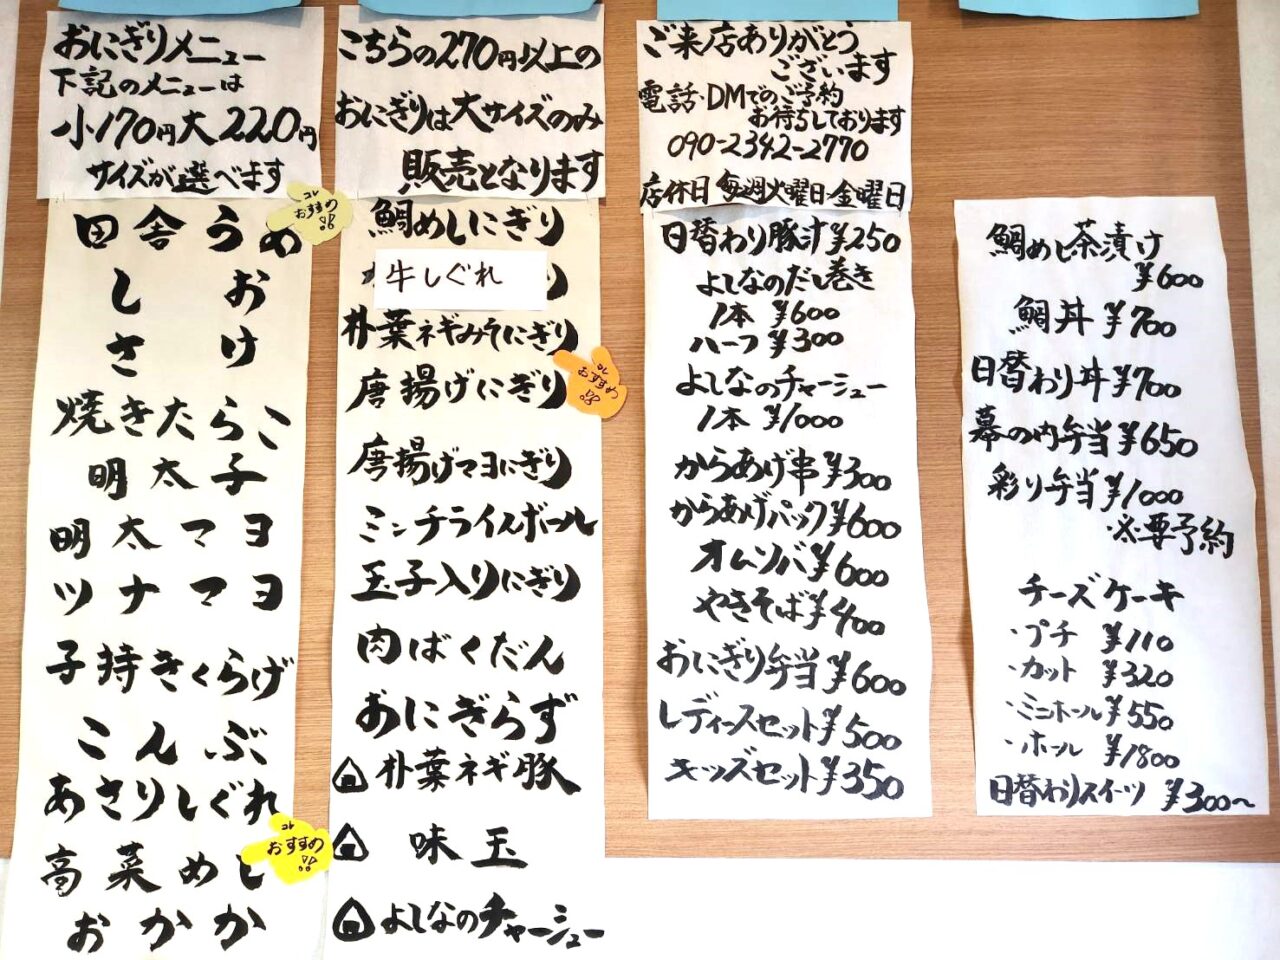 おにぎりメニュー
下記のメニューは
小170円大220円
サイズが選べます
コレ
おすすめ
!!
田舎うめ
しお
さけ
焼きたらこ
明太子
明太マヨ
ツナマヨ
子持きくらげ
こんぶ
あさりしぐれ
コレ
おすすめ
!!
高菜めし
おかか
こちらの270円以上の
おにぎりは大サイズのみ
販売となります
鯛めしにぎり
牛しぐれ
朴葉ネギみそにぎり
コレ
おすすめ
!!
唐揚げにぎり
唐揚げマヨにぎり
ミンチライスボール
玉子入りにぎり
肉ばくだん
おにぎらず
朴葉ネギ豚
味玉
よしなのチャーシュー
ご来店ありがとう
ございます
電話・DMでのご予約
お待ちしております
090-2342-2770
店休日 毎週火曜日・金曜日
日替わり豚汁¥250
よしなのだし巻き
1本 ¥600
ハーフ ¥300
よしなのチャーシュー
1本 ¥1000
からあげ串¥300
からあげパック¥600
オムソバ¥600
やきそば¥400
おにぎり弁当¥600
レディースセット¥500
キッズセット¥350
鯛めし茶漬け
¥600
鯛丼 ¥700
日替わり丼¥700
幕の内弁当¥650
彩り弁当¥1000
※要予約
チーズケーキ
・プチ ¥110
・カット ¥320
・ミニホール¥550
・ホール ¥1800
日替わりスイーツ ¥300〜